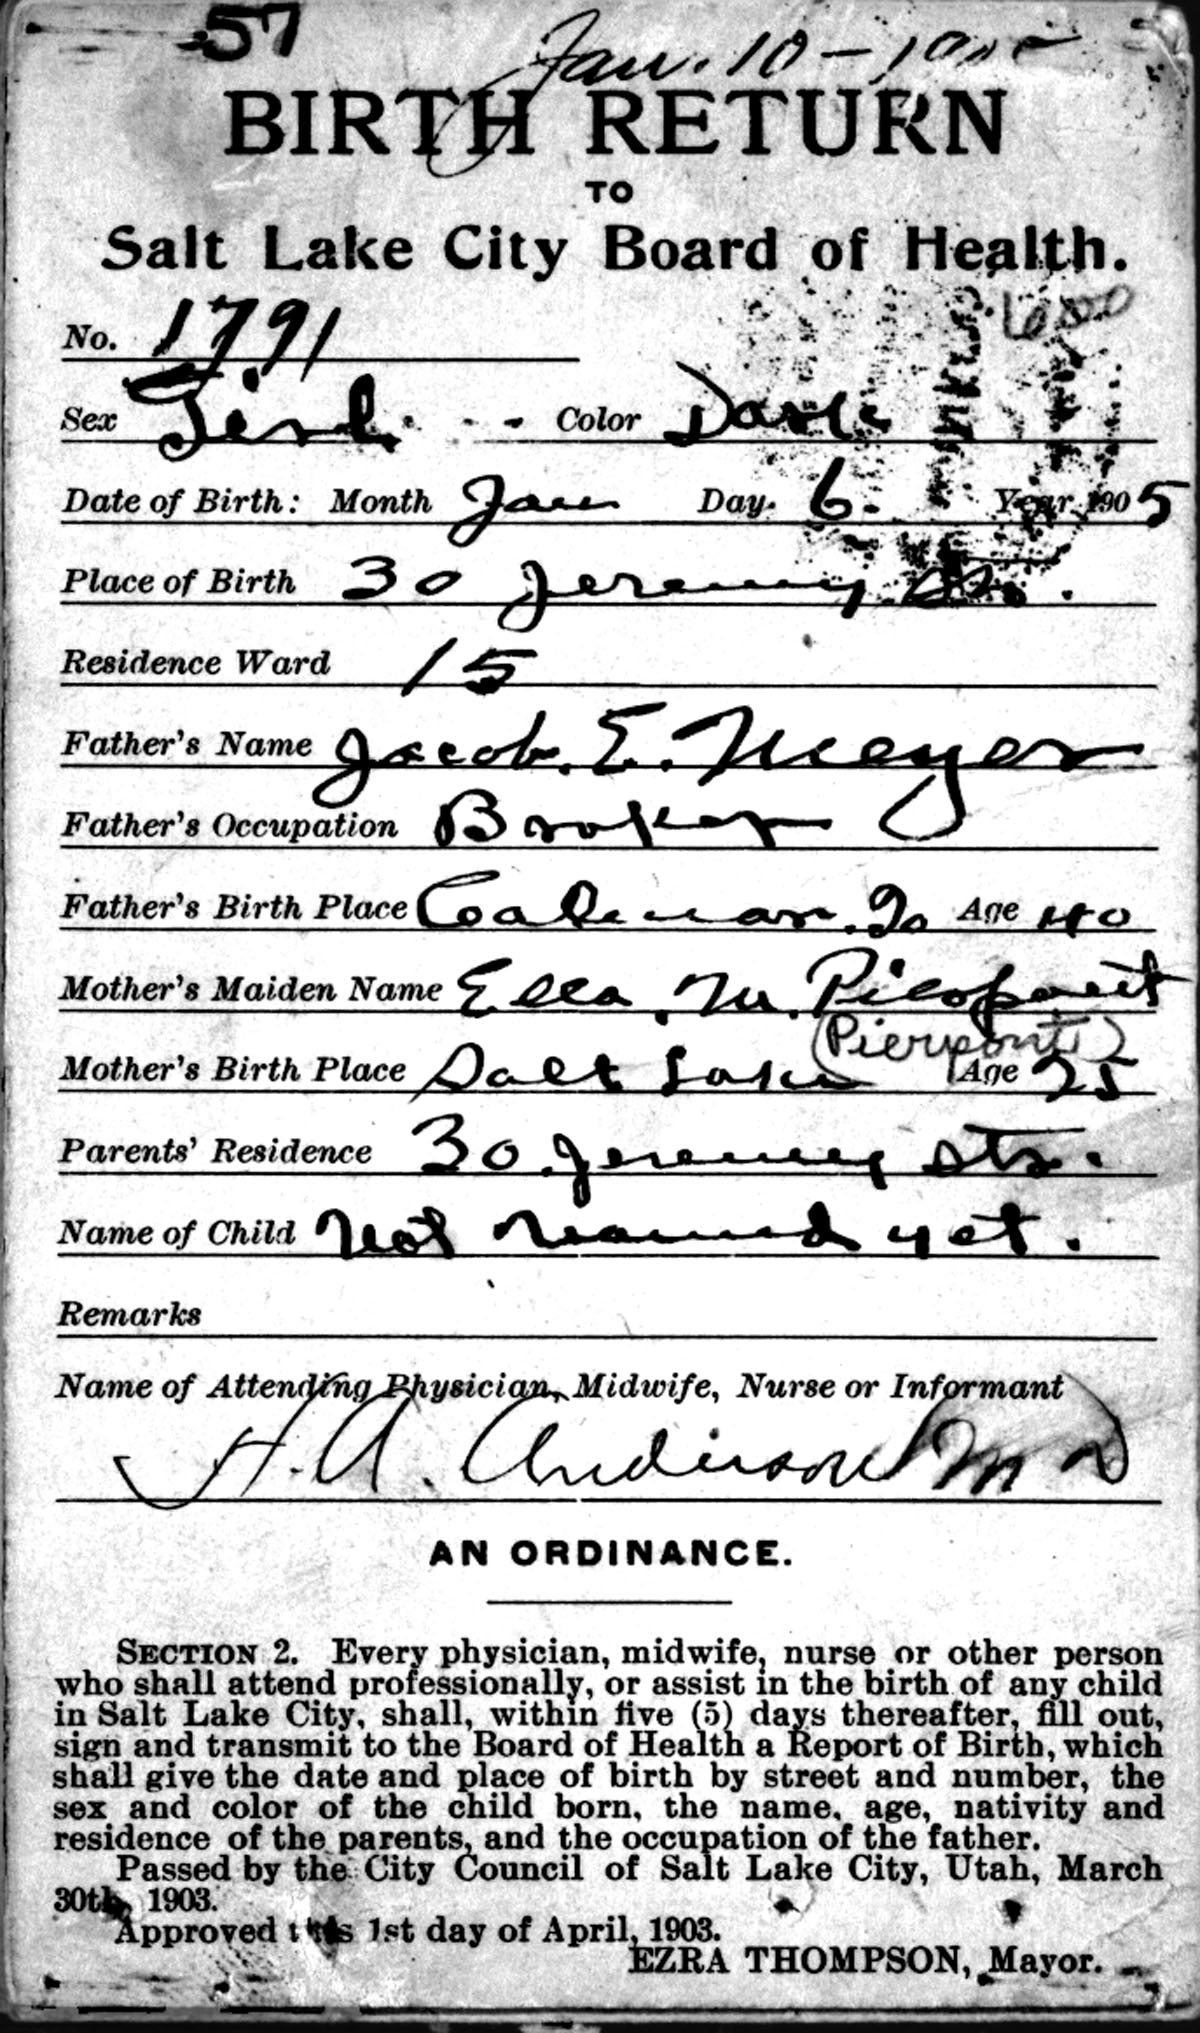 57
Jan. 10 - 1905
BIRTH RETURN
TO
Salt Lake City Board of Health.
No. 1791
Sex Girl Color Dark
Date of Birth: Month Jan Day 6. Year 1905
Place of Birth 30 Jeremy Str.
Residence Ward 15
Father's Name Jacob. E. Meyer
Father's Occupation Broker
Father's Birth Place Age 40
Mother's Maiden Name Ella. M.
(Pierpont)
Mother's Birth Place Salt Lake Age 25
Parents' Residence 30 Jeremy str.
Name of Child Not named yet.
Remarks
Name of Attending Physician, Midwife, Nurse or Informant
H. A. Anderson M D
AN ORDINANCE.
SECTION 2. Every physician, midwife, nurse or other person
who shall attend professionally, or assist in the birth of any child
in Salt Lake City, shall, within five (5) days thereafter, fill out,
sign and transmit to the Board of Health a Report of Birth, which
shall give the date and place of birth by street and number, the
sex and color of the child born, the name, age, nativity and
residence of the parents, and the occupation of the father.
Passed by the City Council of Salt Lake City, Utah, March
30th, 1903.
Approved this 1st day of April, 1903.
EZRA THOMPSON, Mayor.